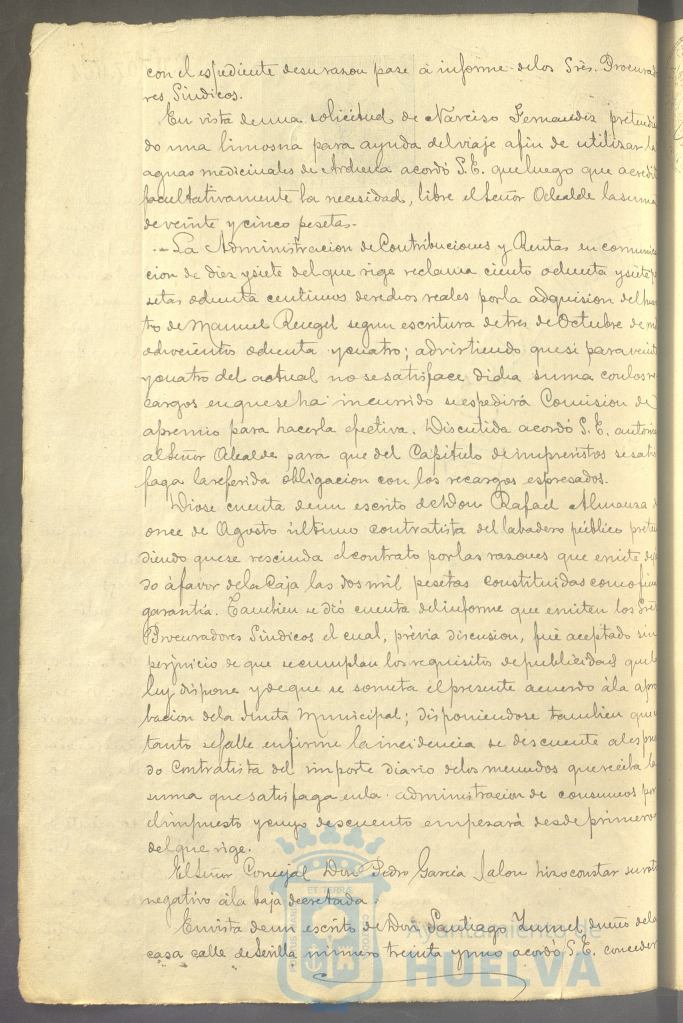 con el espediente desu razon pase á informe delos Srēs. Procurado
res Sindicos.
En vista de una solicitud de Narciso Fernandez pretendien
do una limosna para ayuda del viaje afin de utilizar la
aguas medicinales de Archena acordó S.E. que luego que acredite
facultativamente la necesidad, libre el Señor Alcalde la suma
de veinte y cinco pesetas.
La Administracion de Contribuciones y Rentas en comunica
cion de diez y siete del que rige reclama ciento ochenta y siete pe
setas ochenta centimos derechos reales por la adquision del
tro de Manuel Rengel segun escritura de tres de Octubre de mil
ochocientos ochenta y cuatro; advirtiendo que si para veinte
y cuatro del actual no se satisface dicha suma con los re
cargos en que se ha incurrido se espedirá Comision de
apremio para hacerla efectiva. Discutida acordó S.E. autoriz
al Señor Alcalde para que del Capitulo de imprevistos se satis
faga la referida obligacion con los recargos espresados.
Diose cuenta de un escrito de Don Rafael Almanza de
once de Agosto último contratista del labadero público preten
diendo que se rescinda el contrato por las razones que emite
do á favor de la Caja las dos mil pesetas constituidas como fian
garantia. Tambien se dió cuenta del informe que emiten los Srēs
Procuradores Sindicos el cual, prévia discusion, fué aceptado sin
perjuicio de que se cumplan los requisitos de publicidad que la
ley dispone y de que se someta el presente acuerdo á la apro
bacion de la Junta Municipal; disponiendose tambien que en
tanto se falle en firme la incidencia se descuente al espresa
do Contratista del importe diario delos menudos que reciba la
suma que satisfaga en la administracion de consumos por
el impuesto y cuyo descuento empezará desde primero
del que rige.
El Señor Concejal Don Pedro Garcia Jalon hizo constar su voto
negativo á la baja decretada.
En vista de un escrito de Don Santiago dueño de la
casa calle de Sevilla número treinta y uno acordó S.E. conceder
Ayuntamiento de
HUELVA